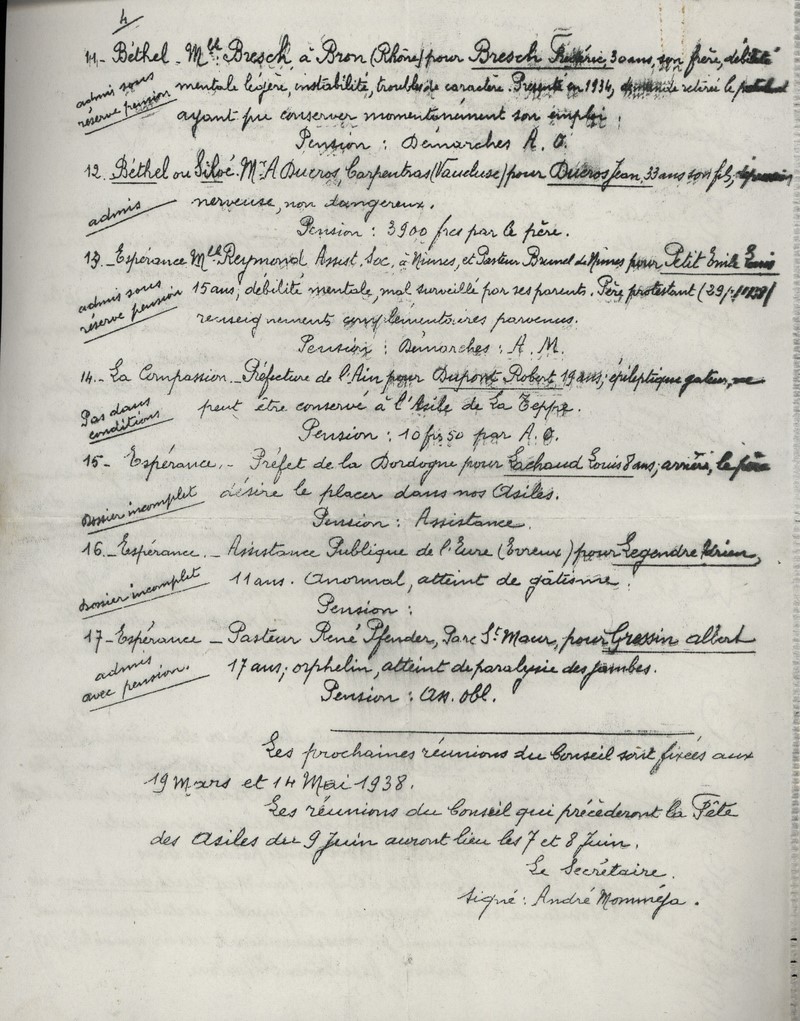 4
11.- Béthel - Mlle Bresch à Bron (Rhône) pour Bresch Frédéric, 30 ans, son frère, débilité
admis sous réserve pension
mentale légère, instabilité, troubles de caractère. Présenté en 1934, demande retirée le
ayant pu conserver momentanément son emploi.
Pension : Démarches A. O.
12. Béthel ou Siloé. Mr A Ducros, Carpentras (Vaucluse) pour Ducros Jean, 33 ans son fils,
admis
nerveuse, non dangereux.
Pension : 3900 frcs par le père.
13.- Espérance Mlle Reymond Assist. Soc. à Nîmes, et Pasteur Brunel de Nîmes pour Petit Emile Louis
admis sous réserve pension
15 ans ; débilité mentale, mal surveillé par ses parents. Père protestant
renseignements complémentaires parvenus.
Pension : Démarches : A. M.
14.- La Compassion. - Préfecture de l'Ain pour Dupont Robert 19 ans ; épileptique gateux, ne
Pas dans conditions
peut être conservé à l'Asile de La Teppe.
Pension : 10 frs 50 par A. O.
15 - Espérance. - Préfet de la Dordogne pour Lachaud Louis 8 ans ; arriéré, le père
Dossier incomplet
désire le placer dans nos Asiles.
Pension : Assistance.
16.- Espérance. - Assistance Publique de l'Eure (Evreux) pour Legendre
Dossier incomplet
11 ans. Anormal, atteint de gâtisme.
Pension :
17 - Espérance - Pasteur René Pfender, Parc St Maur, pour Gressin albert
admis avec pension.
17 ans ; orphelin, atteint de paralysie des jambes.
Pension : Ass. obl.
Les prochaines réunions du Conseil sont fixées aux
19 Mars et 14 Mai 1938.
Les réunions du Conseil qui précèderont la Fête
des Asiles du 9 Juin auront lieu les 7 et 8 Juin.
Le Secrétaire.
Signé : André Momméja.